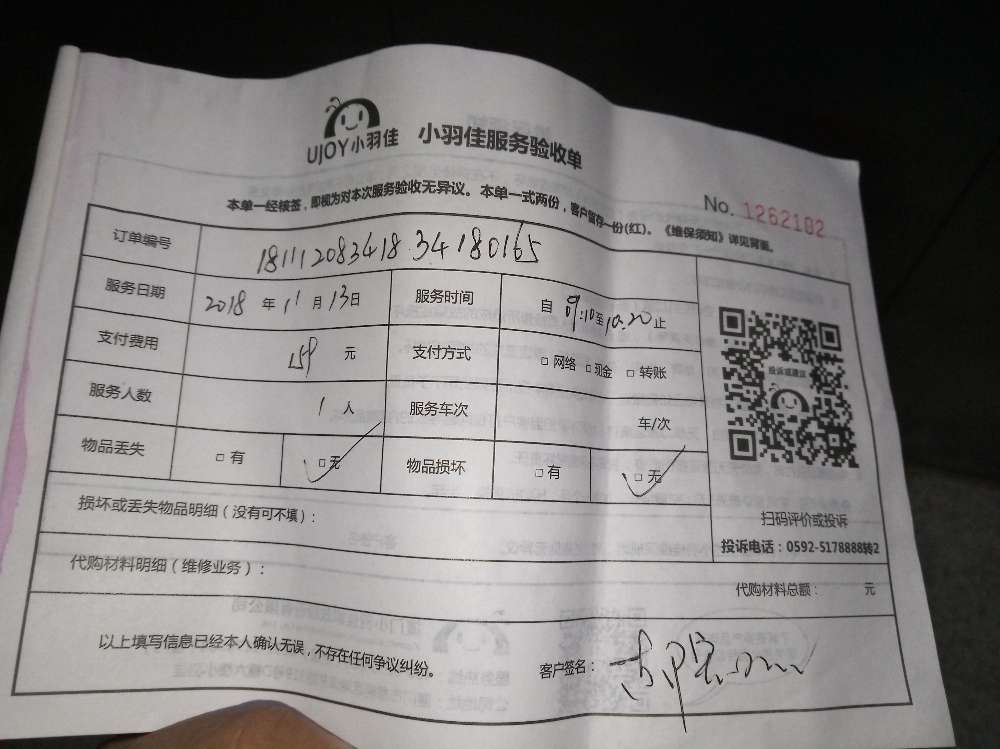 UJOY小羽佳 小羽佳服务验收单
No. 1262182
本单一经核签，即视为对本次服务验收无异议。本单一式两份，客户留存一份(红)。《维保须知》详见背面。
订单编号 18111208341834180165
服务日期 2018 年 11 月 13 日 服务时间 自 09:10 至 10:20 止
支付费用 159 元 支付方式 □ 网络 □ 现金 □ 转账
服务人数 1 人 服务车次 车/次
物品丢失 □ 有 □ 无 物品损坏 □ 有 □ 无
投诉或建议
扫码评价或投诉
投诉电话：0592-5178888转2
损坏或丢失物品明细（没有可不填）：
代购材料明细（维修业务）：
代购材料总额： 元
以上填写信息已经本人确认无误，不存在任何争议纠纷。 客户签名：